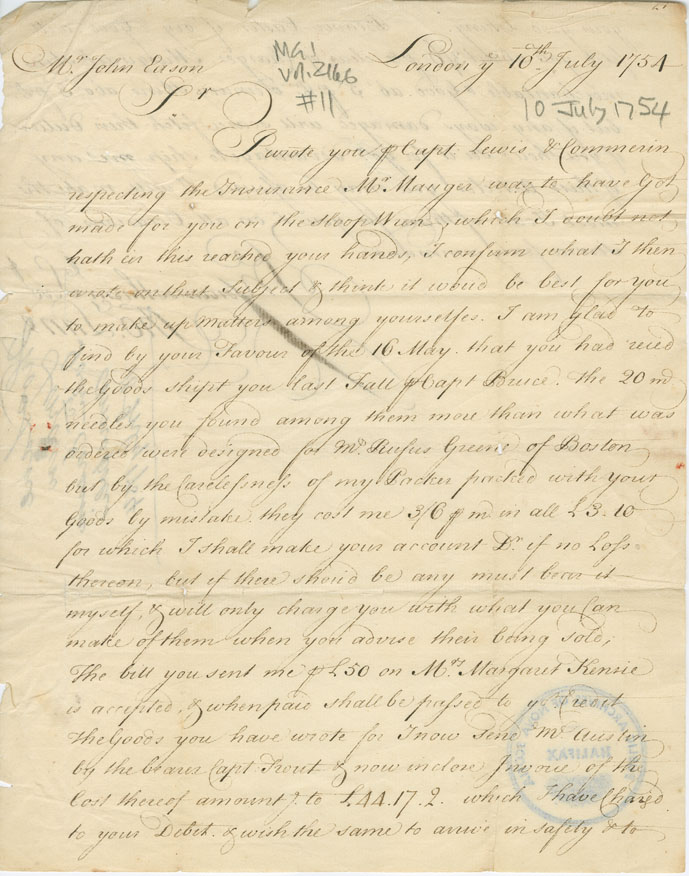 Mr. John Eason
London ye 10th July 1754
MG1
Vol. 2166
#11
10 July 1754
Sr
I wrote you p Capt Lewis & Commerin
respecting the Insurance Mr. Mauger was to have Got
made for you on the Sloop Wren, which I doubt not
hath ere this reached your hands, I confirm what I then
wrote on that Subject & think it would be best for you
to make up matters among yourselfes. I am glad to
find by your Favour of the 16 May that you had recd
the Goods shipt you last Fall p Capt Bruce. the 20 m
needles you found among them more than what was
ordered were designed for Mr. Rufus Greene of Boston
but by the Carelessness of my Packer packed with your
Goods by mistake. they cost me 3/6 p m in all £3-10
for which I shall make your account Dr. if no Loss
thereon, but if there should be any must bear it
myself, & will only charge you with what you Can
make of them when you advise their being sold,
The bill you sent me p £50 on Mrs Margaret Kensie
is accepted, & when paid shall be passed to yr Credit
The Goods you have wrote for I now Send Mr Austin
by the bearer Capt Trout & now inclose Invoice of the
Cost thereof amountg. to £44.17.2. which I have Charged
to your Debit. & wish the same to arrive in safety & to
HALIFAX